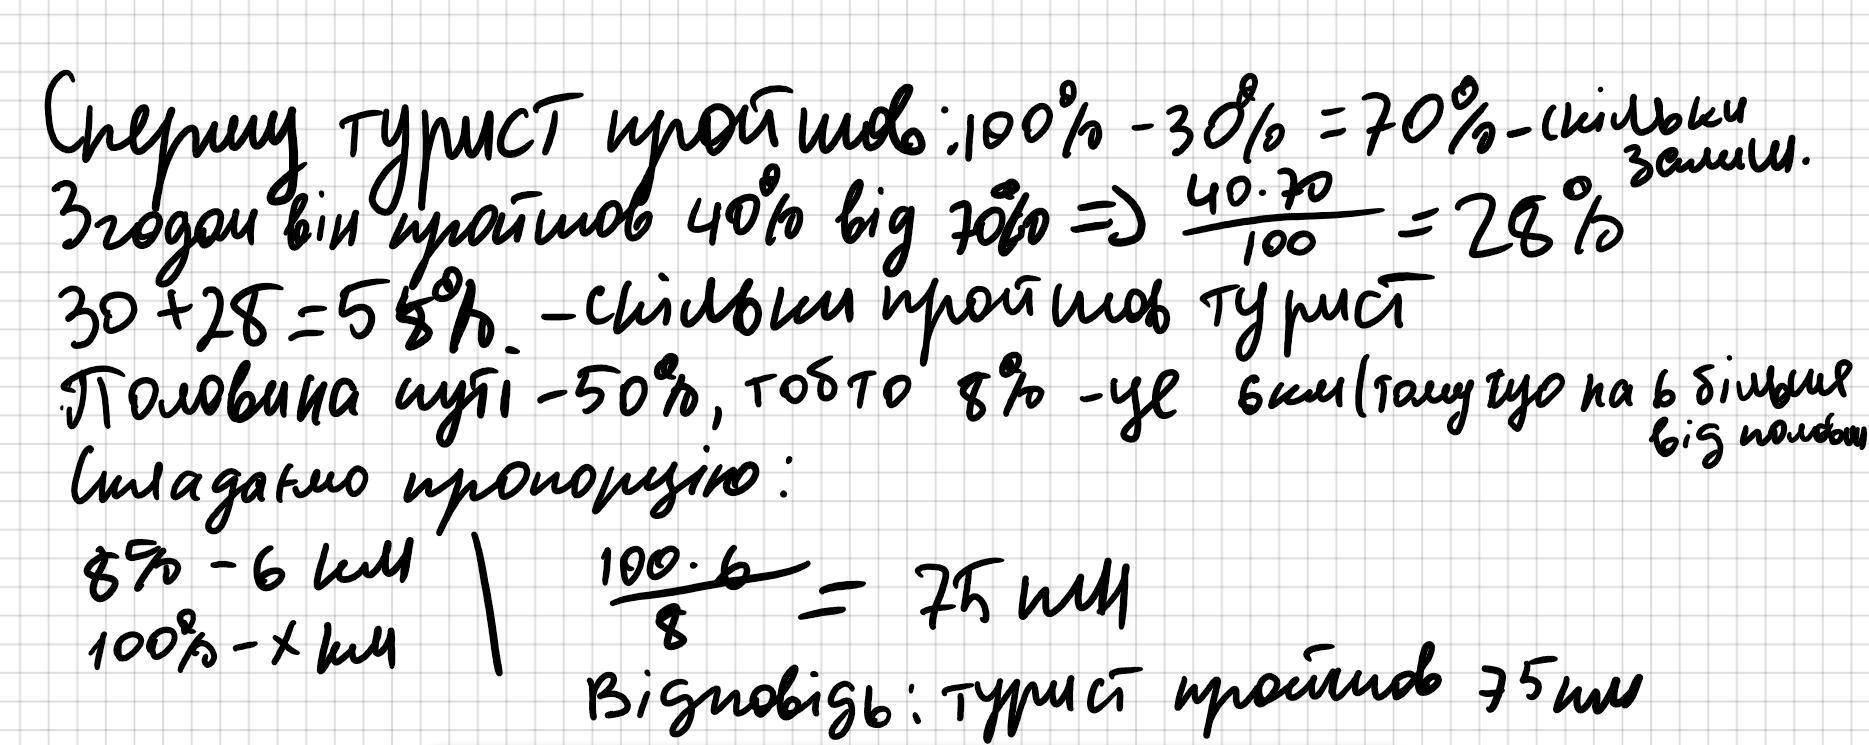 Спершу турист пройшов: 100% - 30% = 70% - скільки залиш.
Згодом він пройшов 40% від 70% => 40·70/100 = 28%
30 + 28 = 58% - скільки пройшов турист
Половина путі - 50%, тобто 8% - це 6 км (тому що на 6 більше від половин
Складаємо пропорцію:
8% - 6 км | 100·6/8 = 75 км
100% - x км
Відповідь: турист пройшов 75 км